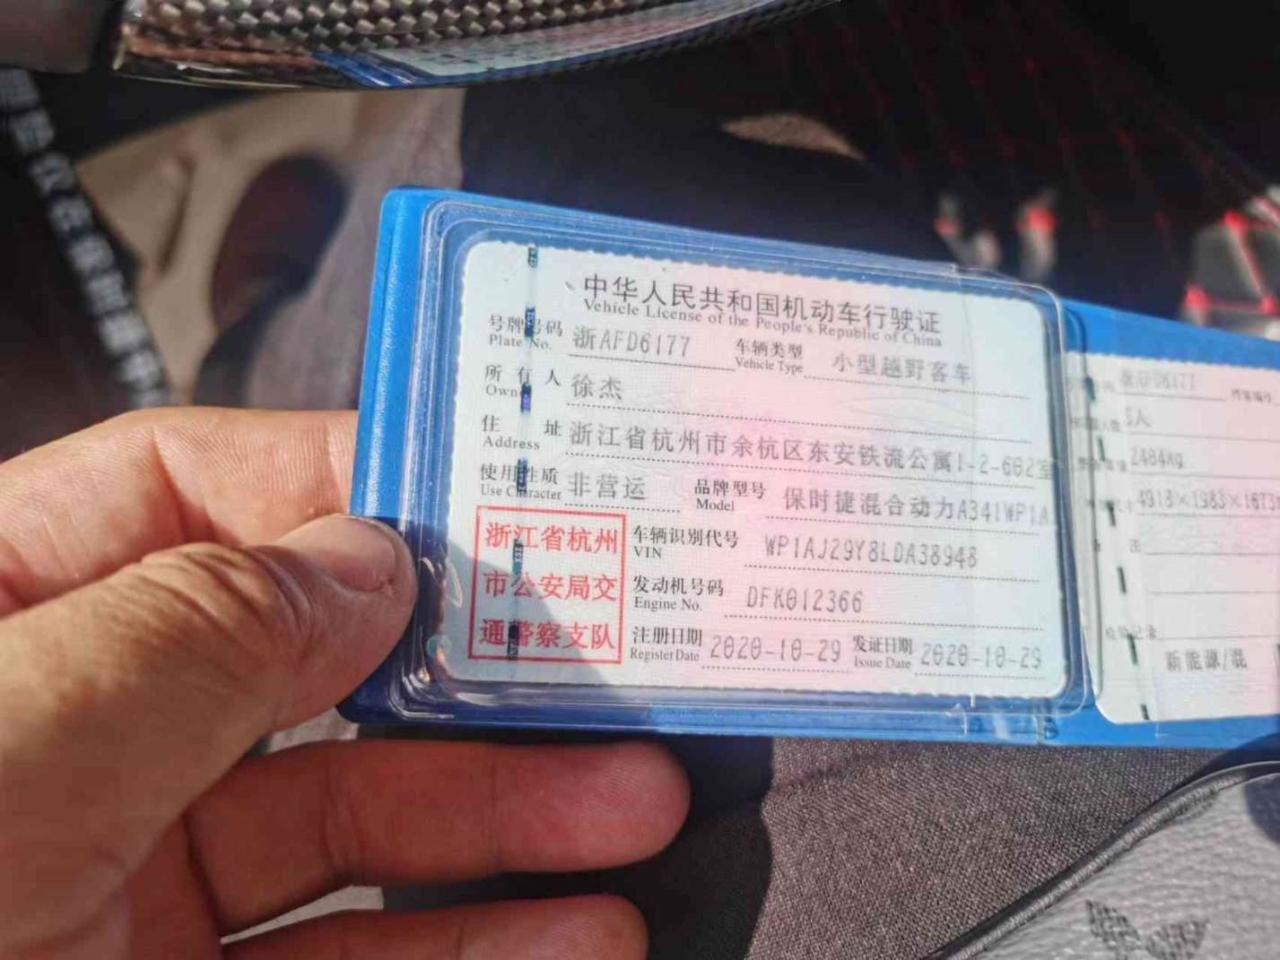 中华人民共和国机动车行驶证
Vehicle License of the People's Republic of China
号牌号码 浙AFD6177 车辆类型 小型越野客车
Plate No. Vehicle Type
所有人 徐杰
Owner
住址 浙江省杭州市余杭区东安铁流公寓1-2-602室
Address
使用性质 非营运 品牌型号 保时捷混合动力A341WP1A
Use Character Model
浙江省杭州
市公安局交
通警察支队
车辆识别代号 WP1AJ29Y8LDA38948
VIN
发动机号码 DFK012366
Engine No.
注册日期 2020-10-29 发证日期 2020-10-29
Register Date Issue Date
浙AFD6177
5人
2484kg
4918×1983×1673
新能源/混